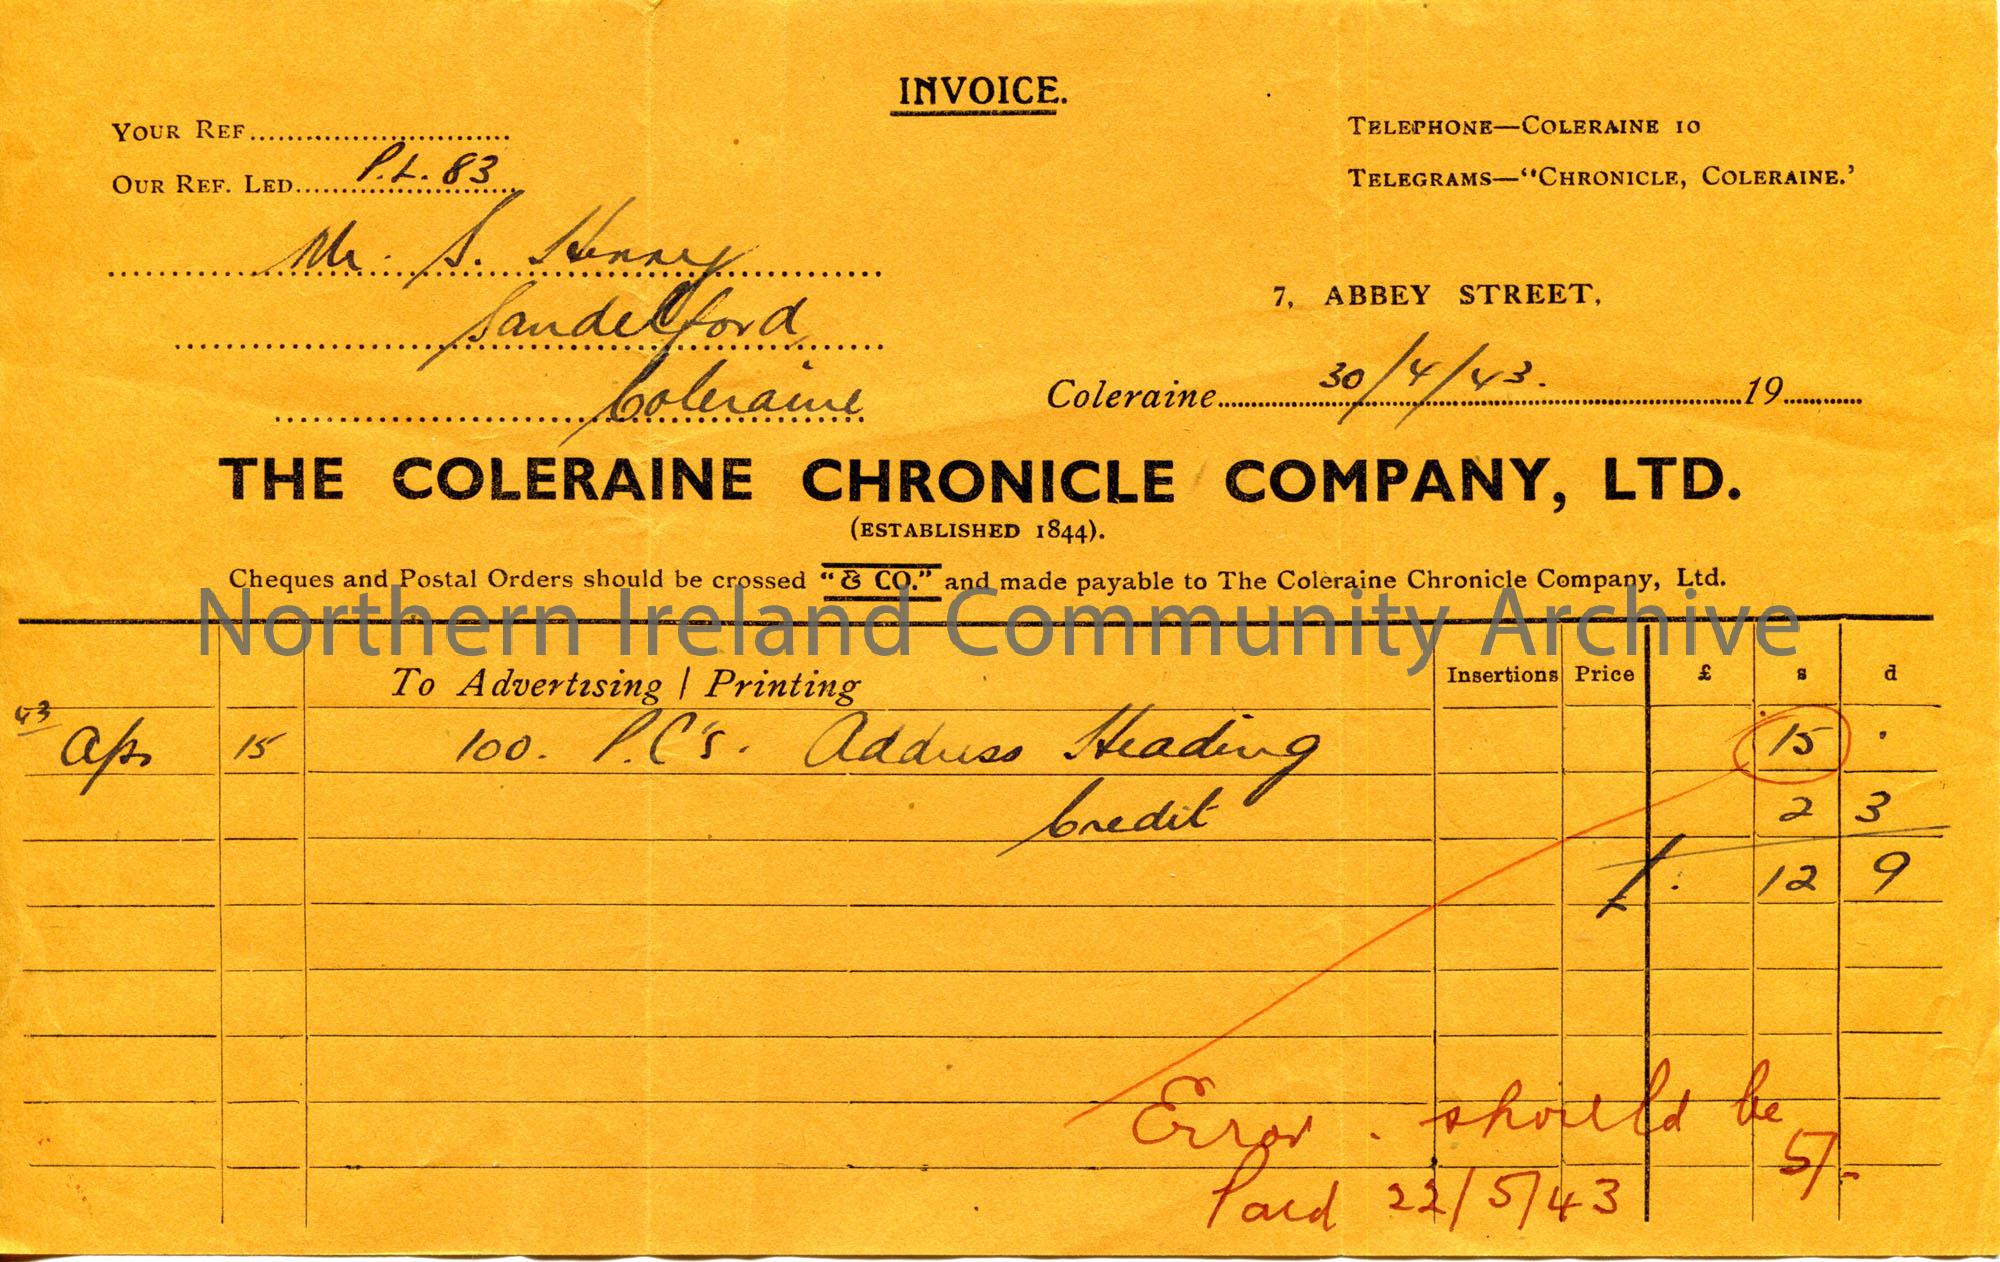 INVOICE.
YOUR REF
TELEPHONE—COLERAINE 10
OUR REF. LED. P.L. 83
TELEGRAMS—"CHRONICLE, COLERAINE.'
Mr. S. Henry
Sandelford
7, ABBEY STREET,
Coleraine
Coleraine 30/4/43. 19
THE COLERAINE CHRONICLE COMPANY, LTD.
(ESTABLISHED 1844).
Cheques and Postal Orders should be crossed "& CO." and made payable to The Coleraine Chronicle Company, Ltd.
Northern Ireland Community Archive
To Advertising | Printing Insertions Price £ s d
43
Apr 15 100. P.C's. Address Heading 15 .
Credit 2 3
£. 12 9
Error. should be
5/-
Paid 22/5/43